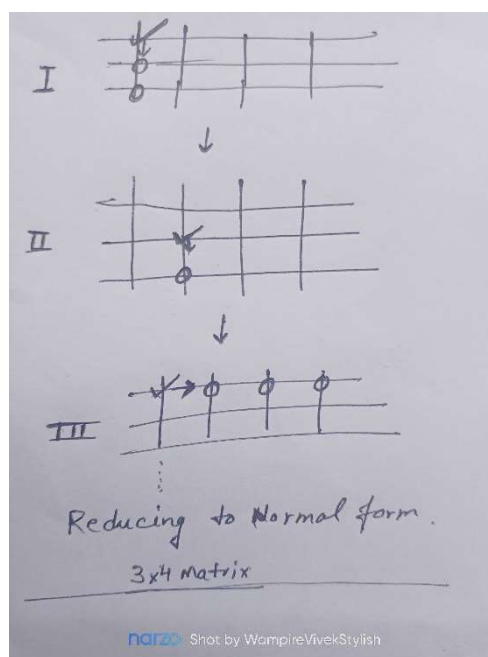 I
II
III
Reducing to Normal form.
3x4 Matrix
narzo Shot by WampireVivekStylish